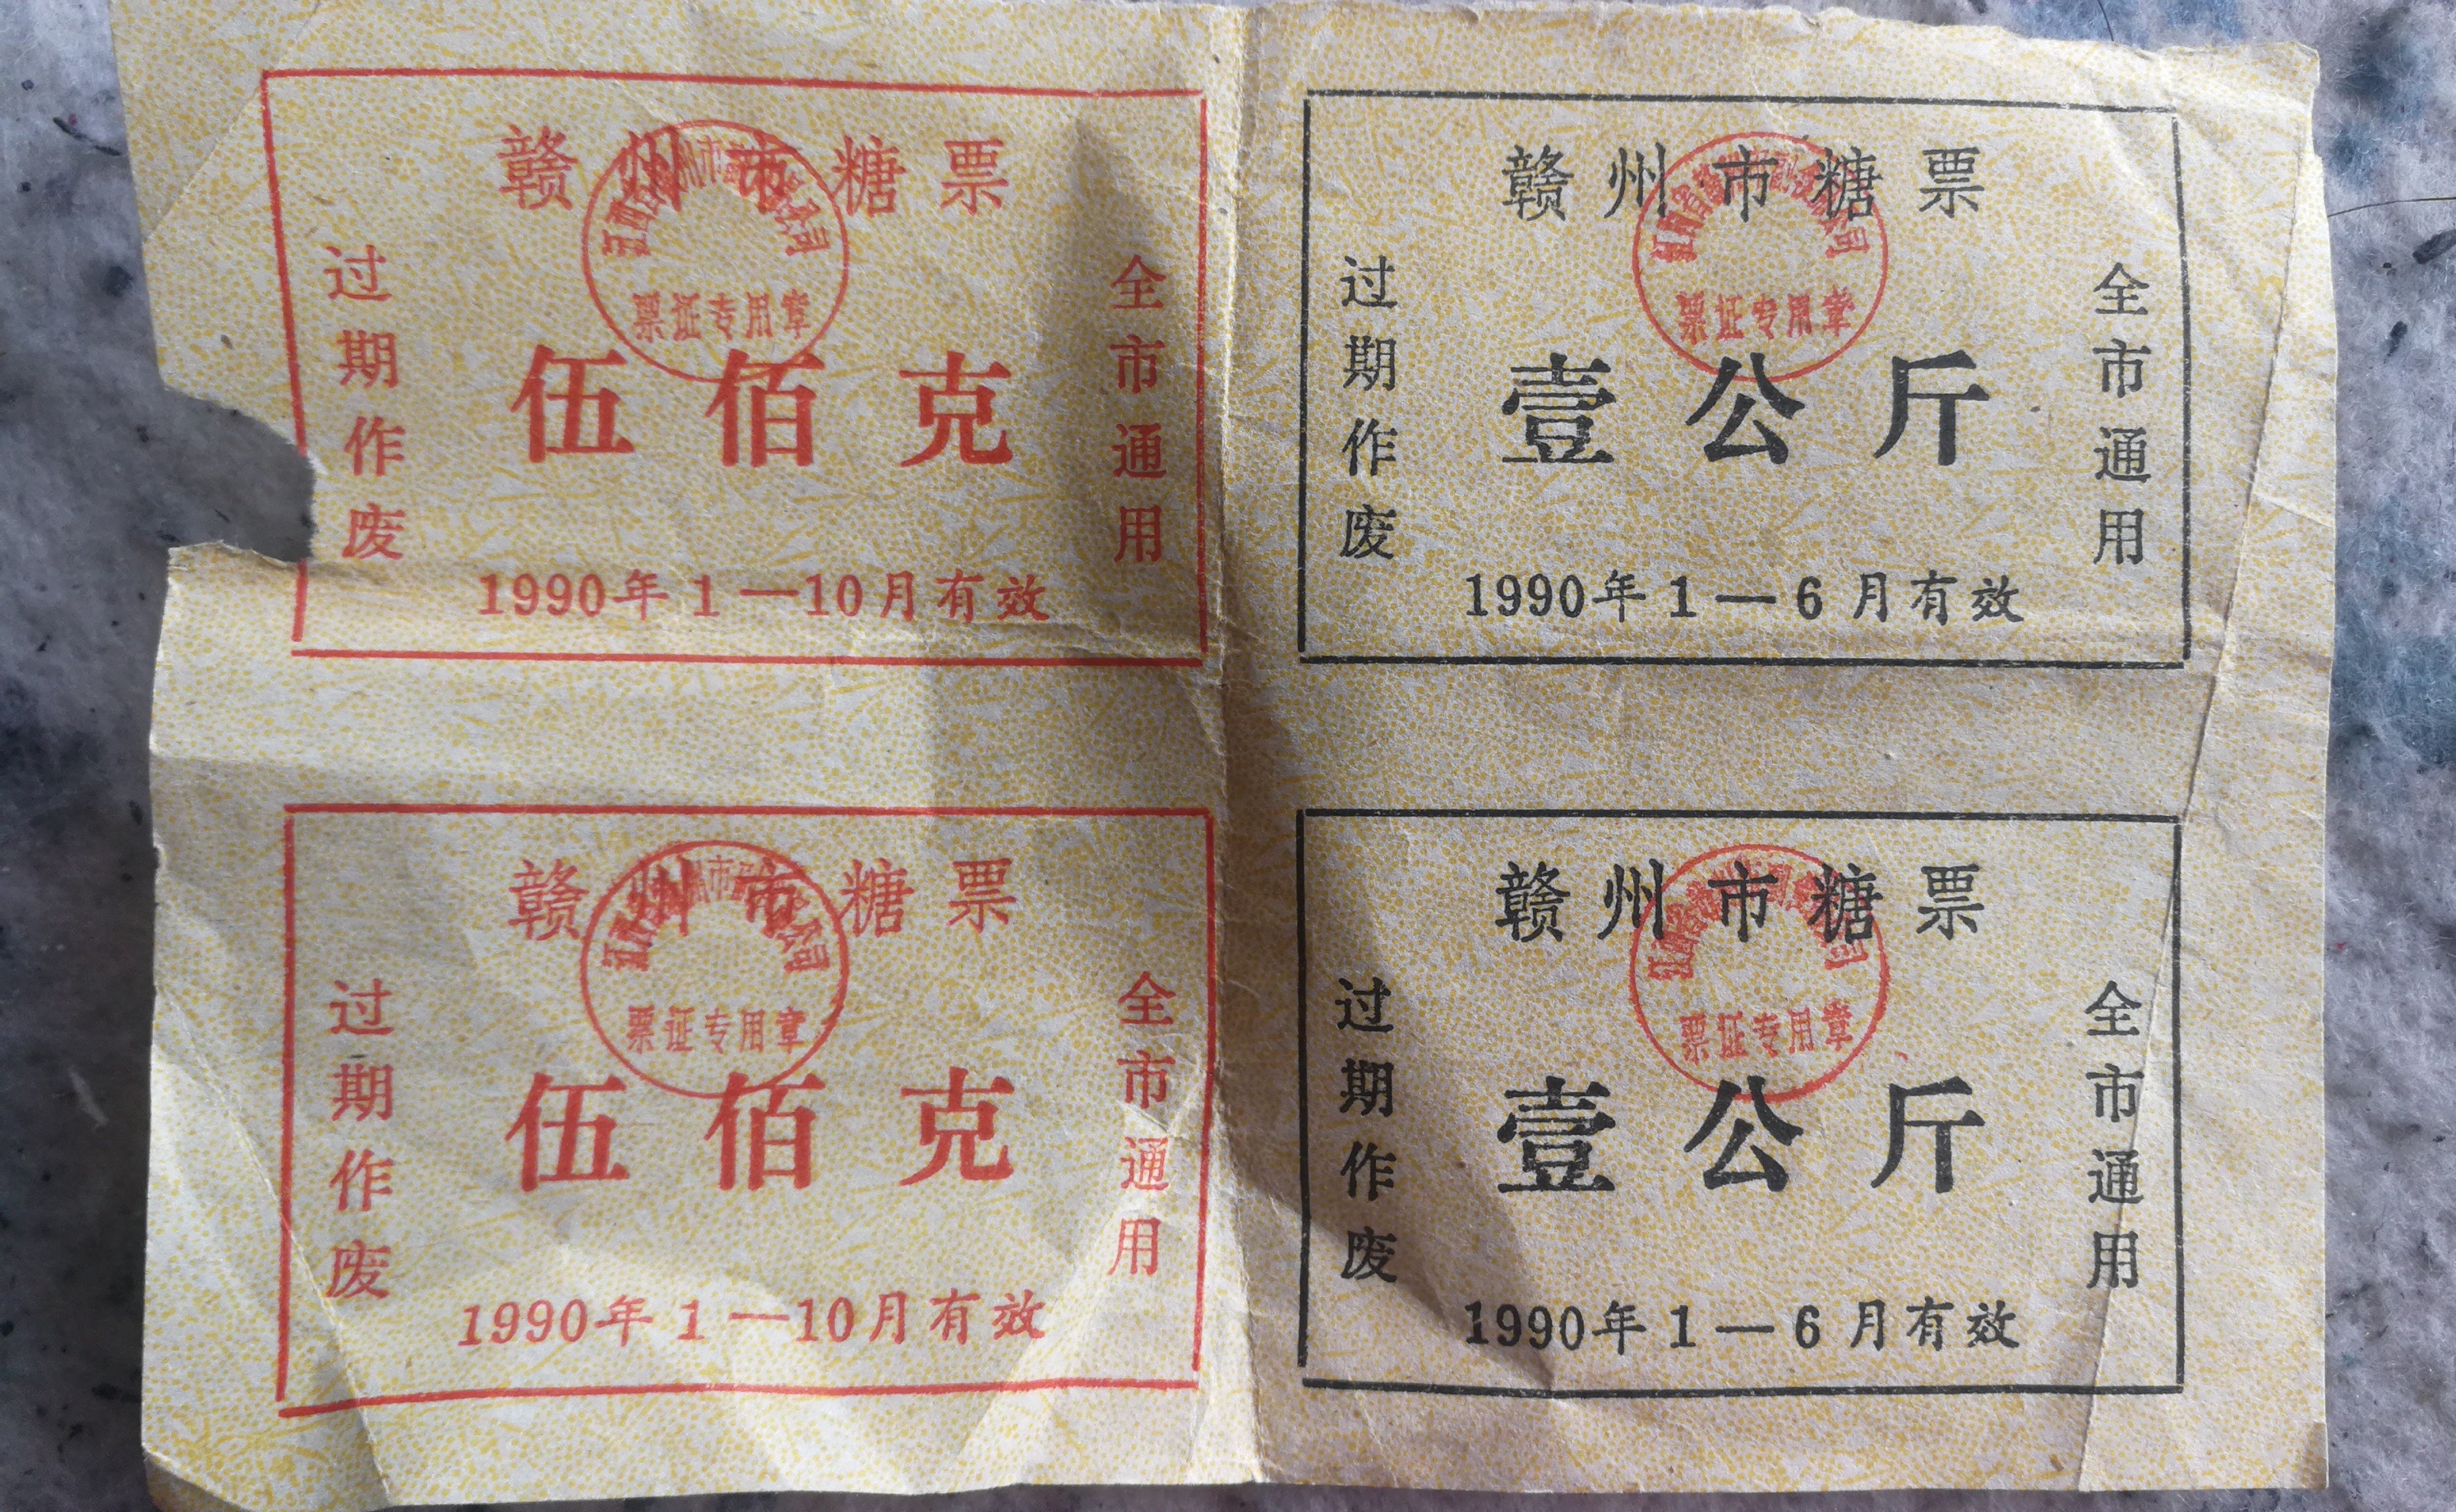 赣州市糖票
票证专用章
过期作废
全市通用
伍佰克
1990年1—10月有效
赣州市糖票
票证专用章
过期作废
全市通用
壹公斤
1990年1—6月有效
赣州市糖票
票证专用章
过期作废
全市通用
伍佰克
1990年1—10月有效
赣州市糖票
票证专用章
过期作废
全市通用
壹公斤
1990年1—6月有效